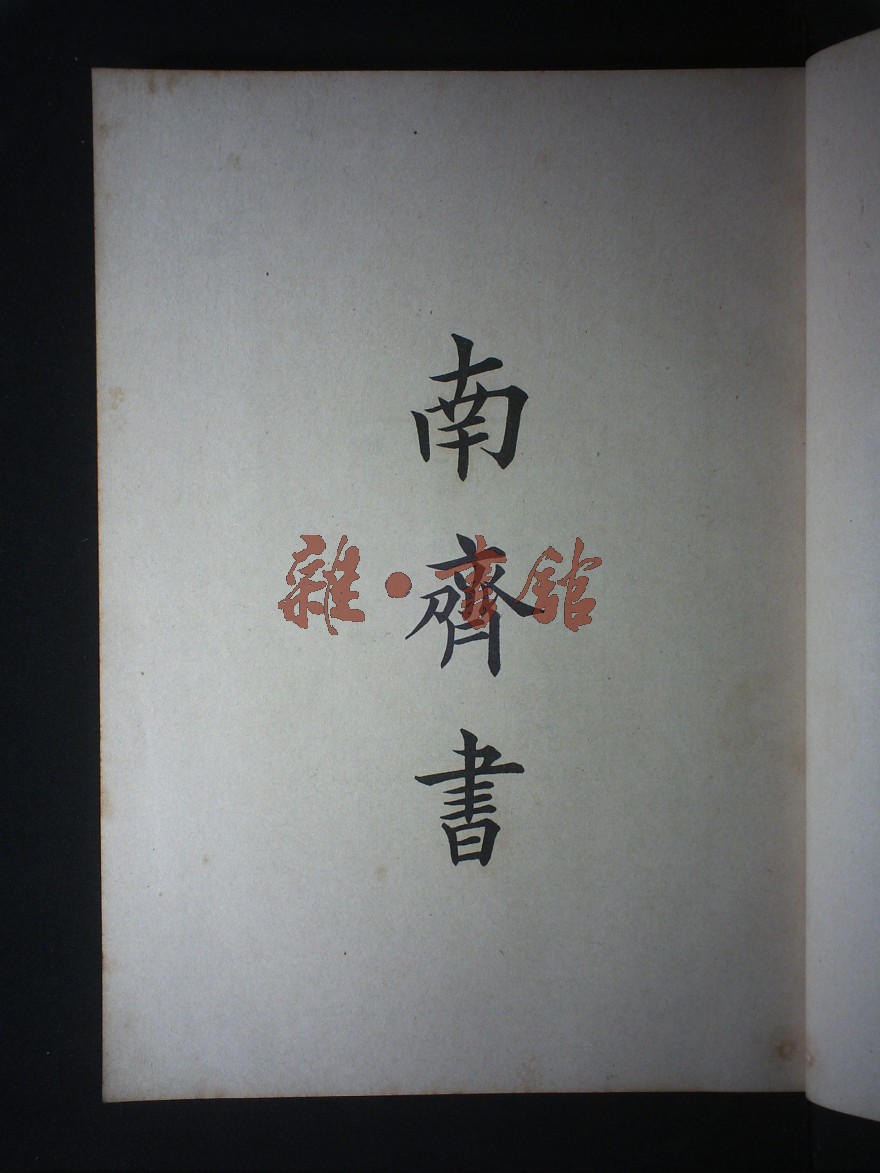 南齊書
雜·書館